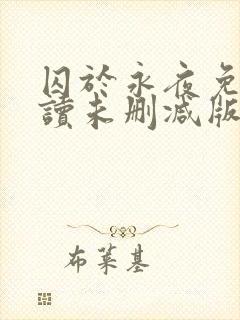 囚於永夜免
讀未刪減版
布萊基